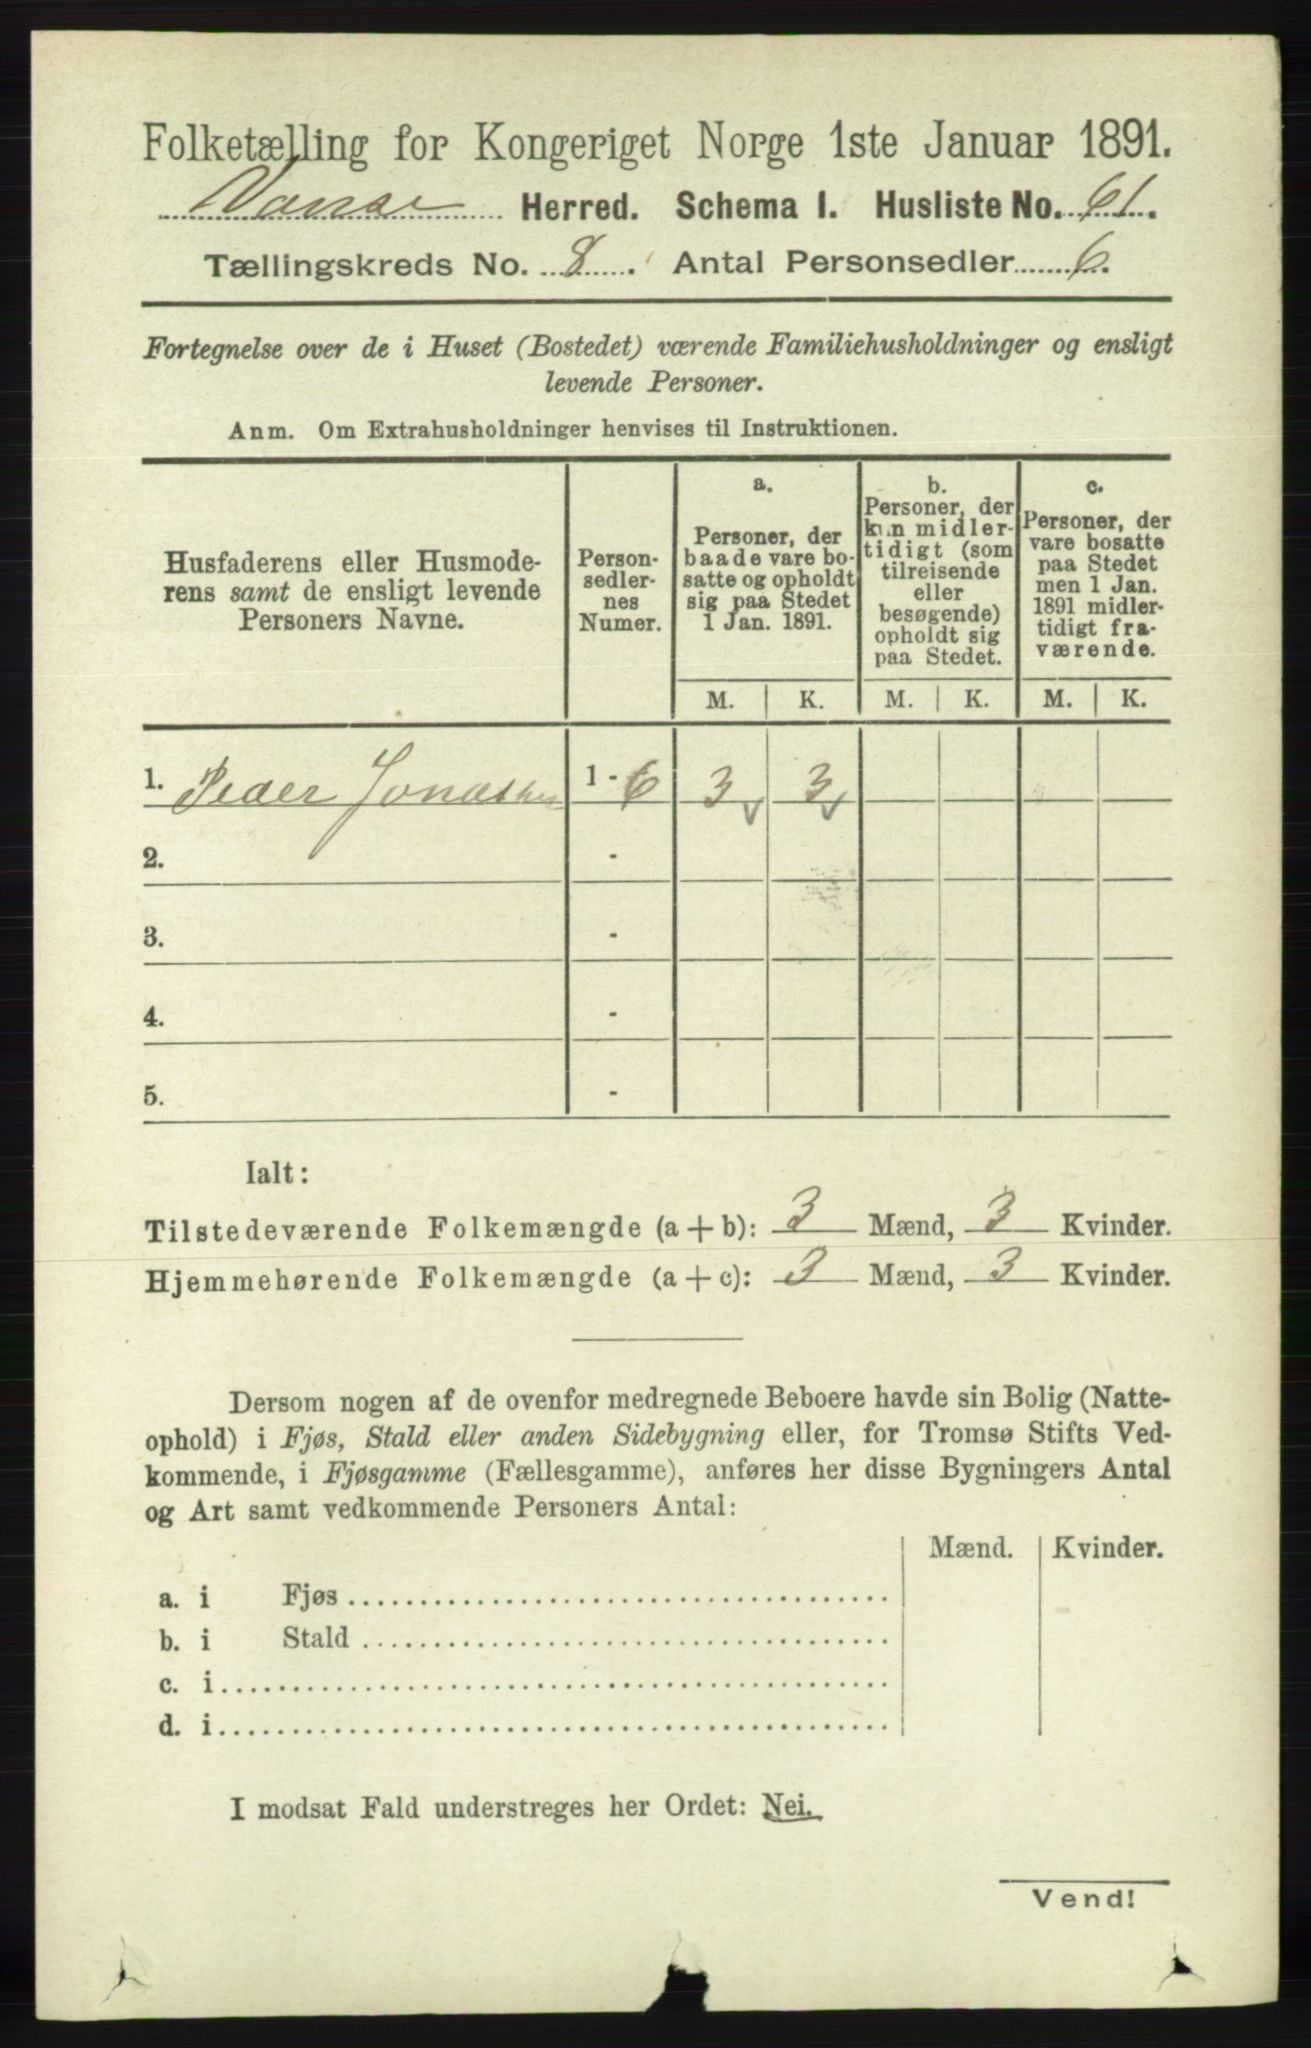 Folketælling for Kongeriget Norge 1ste Januar 1891.
Vanse Herred. Schema I. Husliste No. 61.
Tællingskreds No. 8. Antal Personsedler 6.
Fortegnelse over de i Huset (Bostedet) værende Familiehusholdninger og ensligt
levende Personer.
Anm. Om Extrahusholdninger henvises til Instruktionen.
Husfaderens eller Husmode-
rens samt de ensligt levende
Personers Navne.
Person-
sedler-
nes
Numer.
a.
Personer, der
baade vare bo-
satte og opholdt
sig paa Stedet
1 Jan. 1891.
b.
Personer, der
kun midler-
tidigt (som
tilreisende
eller
besøgende)
opholdt sig
paa Stedet.
c.
Personer, der
vare bosatte
paa Stedet
men 1 Jan.
1891 midler-
tidigt fra-
værende.
M. K. M. K. M. K.
1. Peder 1 - 6 3 3
2. -
3. -
4. -
5. -
Ialt:
Tilstedeværende Folkemængde (a + b): 3 Mænd, 3 Kvinder.
Hjemmehørende Folkemængde (a + c): 3 Mænd, 3 Kvinder.
Dersom nogen af de ovenfor medregnede Beboere havde sin Bolig (Natte-
ophold) i Fjøs, Stald eller anden Sidebygning eller, for Tromsø Stifts Ved-
kommende, i Fjøsgamme (Fællesgamme), anføres her disse Bygningers Antal
og Art samt vedkommende Personers Antal:
Mænd. Kvinder.
a. i Fjøs
b. i Stald
c. i
d. i
I modsat Fald understreges her Ordet: Nei.
Vend!